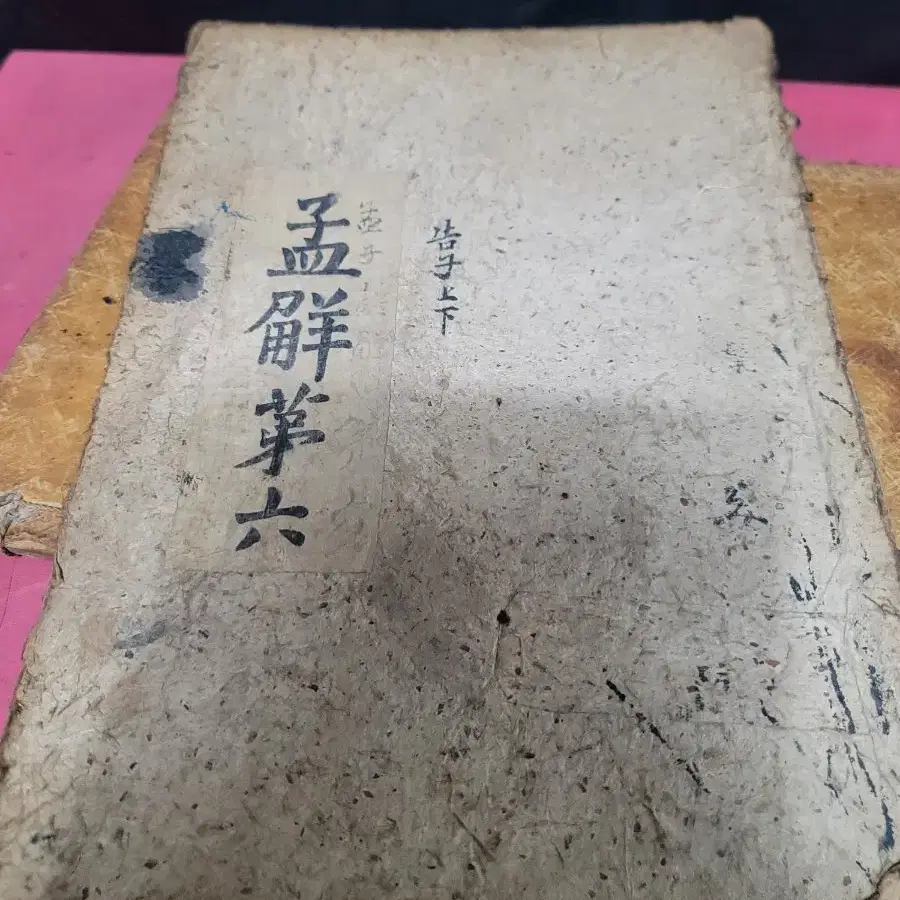 告子上下
孟子
孟解苐六